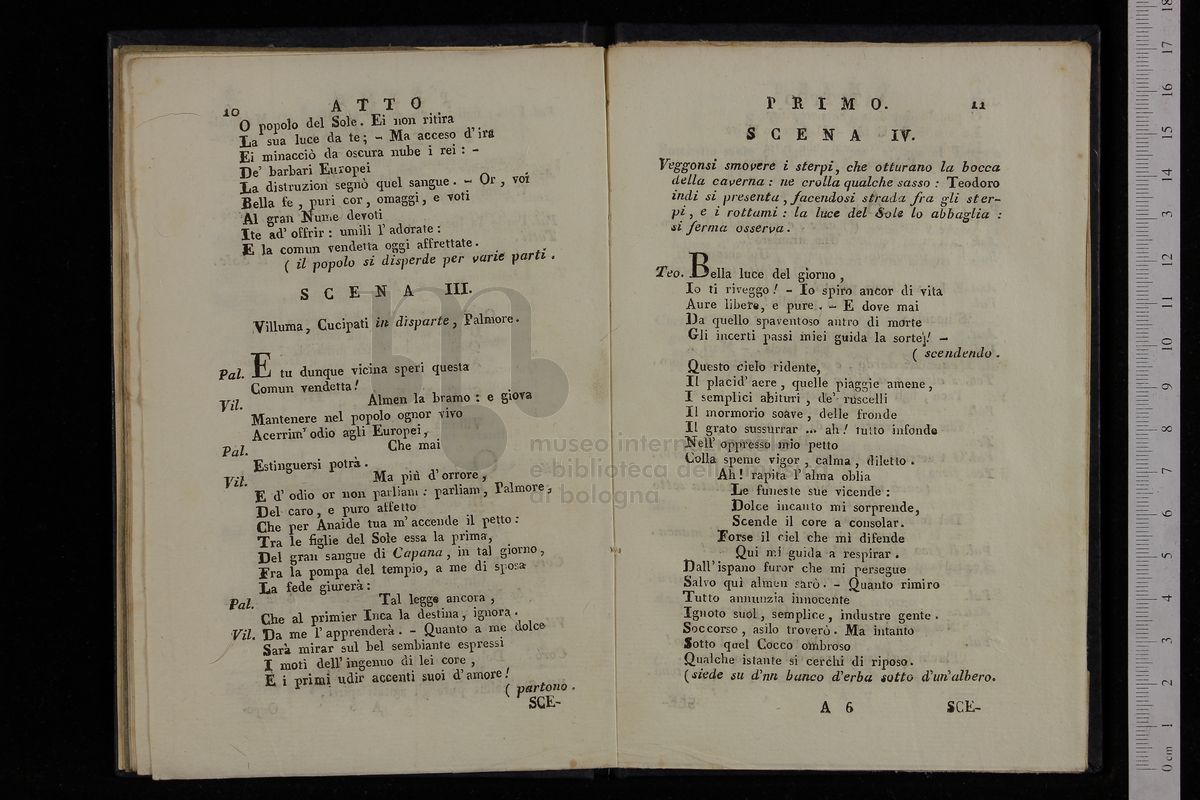 10
ATTO
O popolo del Sole. Ei non ritira
La sua luce da te; - Ma acceso d'ira
Ei minacciò da oscura nube i rei : -
De' barbari Europei
La distruzion segnò quel sangue. - Or, voi
Bella fe, puri cor, omaggi, e voti
Al gran Nume devoti
Ite ad' offrir : umili l' adorate :
E la comun vendetta oggi affrettate.
( il popolo si disperde per varie parti.
SCENA III.
Villuma, Cucipati in disparte, Palmore.
Pal. E tu dunque vicina speri questa
Comun vendetta!
Vil. Almen la bramo : e giova
Mantenere nel popolo ognor vivo
Acerrim' odio agli Europei,
Pal. Che mai
Estinguersi potrà.
Vil. Ma più d'orrore,
E d' odio or non parliam : parliam, Palmore,
Del caro, e puro affetto
Che per Anaide tua m' accende il petto :
Tra le figlie del Sole essa la prima,
Del gran sangue di Capana, in tal giorno,
Fra la pompa del tempio, a me di sposa
La fede giurerà :
Pal. Tal legge ancora,
Che al primier Inca la destina, ignora.
Vil. Da me l' apprenderà. - Quanto a me dolce
Sarà mirar sul bel sembiante espressi
I moti dell' ingenuo di lei core,
E i primi udir accenti suoi d'amore!
( partono.
SCE-
PRIMO.
11
SCENA IV.
Veggonsi smovere i sterpi, che otturano la bocca
della caverna : ne crolla qualche sasso : Teodoro
indi si presenta, facendosi strada fra gli ster-
pi, e i rottami : la luce del Sole lo abbaglia :
si ferma osserva.
Teo. Bella luce del giorno,
Io ti riveggo! - Io spiro ancor di vita
Aure libere, e pure. - E dove mai
Da quello spaventoso antro di morte
Gli incerti passi miei guida la sorte)! -
( scendendo.
Questo cielo ridente,
Il placid' aere, quelle piaggie amene,
I semplici abituri, de' ruscelli
Il mormorio soave, delle fronde
Il grato sussurrar ... ah! tutto infonde
Nell' oppresso mio petto
Colla speme vigor, calma, diletto.
Ah! rapita l' alma oblia
Le funeste sue vicende :
Dolce incanto mi sorprende,
Scende il core a consolar.
Forse il ciel che mi difende
Qui mi guida a respirar.
Dall' ispano furor che mi persegue
Salvo quì almen sarò. - Quanto rimiro
Tutto annunzia innocente
Ignoto suol, semplice, industre gente.
Soccorso, asilo troverò. Ma intanto
Sotto quel Cocco ombroso
Qualche istante si cerchi di riposo.
(siede su d'nn banco d'erba sotto d'un'albero.
A 6
SCE-
museo inter
e biblioteca del
di bologna
0 cm 1 2 3 4 5 6 7 8 9 10 11 12 13 14 15 16 17 18